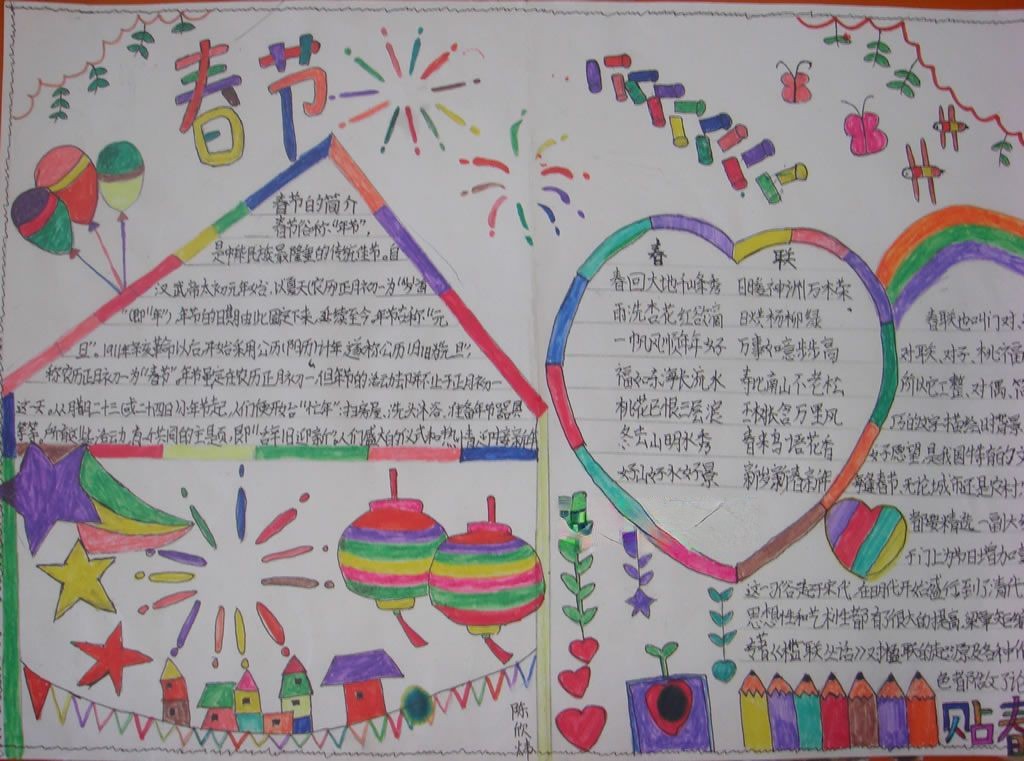 春节
春节的简介
春节俗称“年节”,
是中华民族最隆重的传统佳节。自
汉武帝太初元年始,以夏天(农历正月初一为“岁首
”(即“年”),年节的日期由此固定下来,延续至今,年节古称“元
旦”。1911年辛亥革命以后,开始采用公历(阳历)计年,遂称公历1月1日为“元旦”,
称农历正月初一为“春节”。年节重定在农历正月初一,但年节的活动却并不止于正月初一
这一天。从腊月二十三(或二十四日)小年节起,人们便开始“忙年”:扫房屋、洗头沐浴、准备年节器具
等等,所有这些活动,有一共同的主题,即“辞旧迎新”。人们盛大的仪式和热情
春 联
春回大地千峰秀 日暖神洲万木荣
雨洗杏花红欲滴 日烘杨柳绿
一帆风顺年年好 万事如意步步高
福如东海长流水 寿比南山不老松
桃花已恨三层浪
冬去山明水秀 春来鸟语花香
好山好水好景 新岁新春新年
春联也叫门对、
对联、对子、桃符
所以它工整、对偶、简
巧的文字描绘时代背景
好愿望,是我国特有的文
春节,无论城市还是农村
都要精选一副大
于门上,为节日增加
这一习俗起于宋代,在明代开始盛行,到了清代
思想性和艺术性都有很大的提高,梁章钜
专著《楹联丛话》对楹联的起源及各种
色都作了论
陈欣炜
贴春